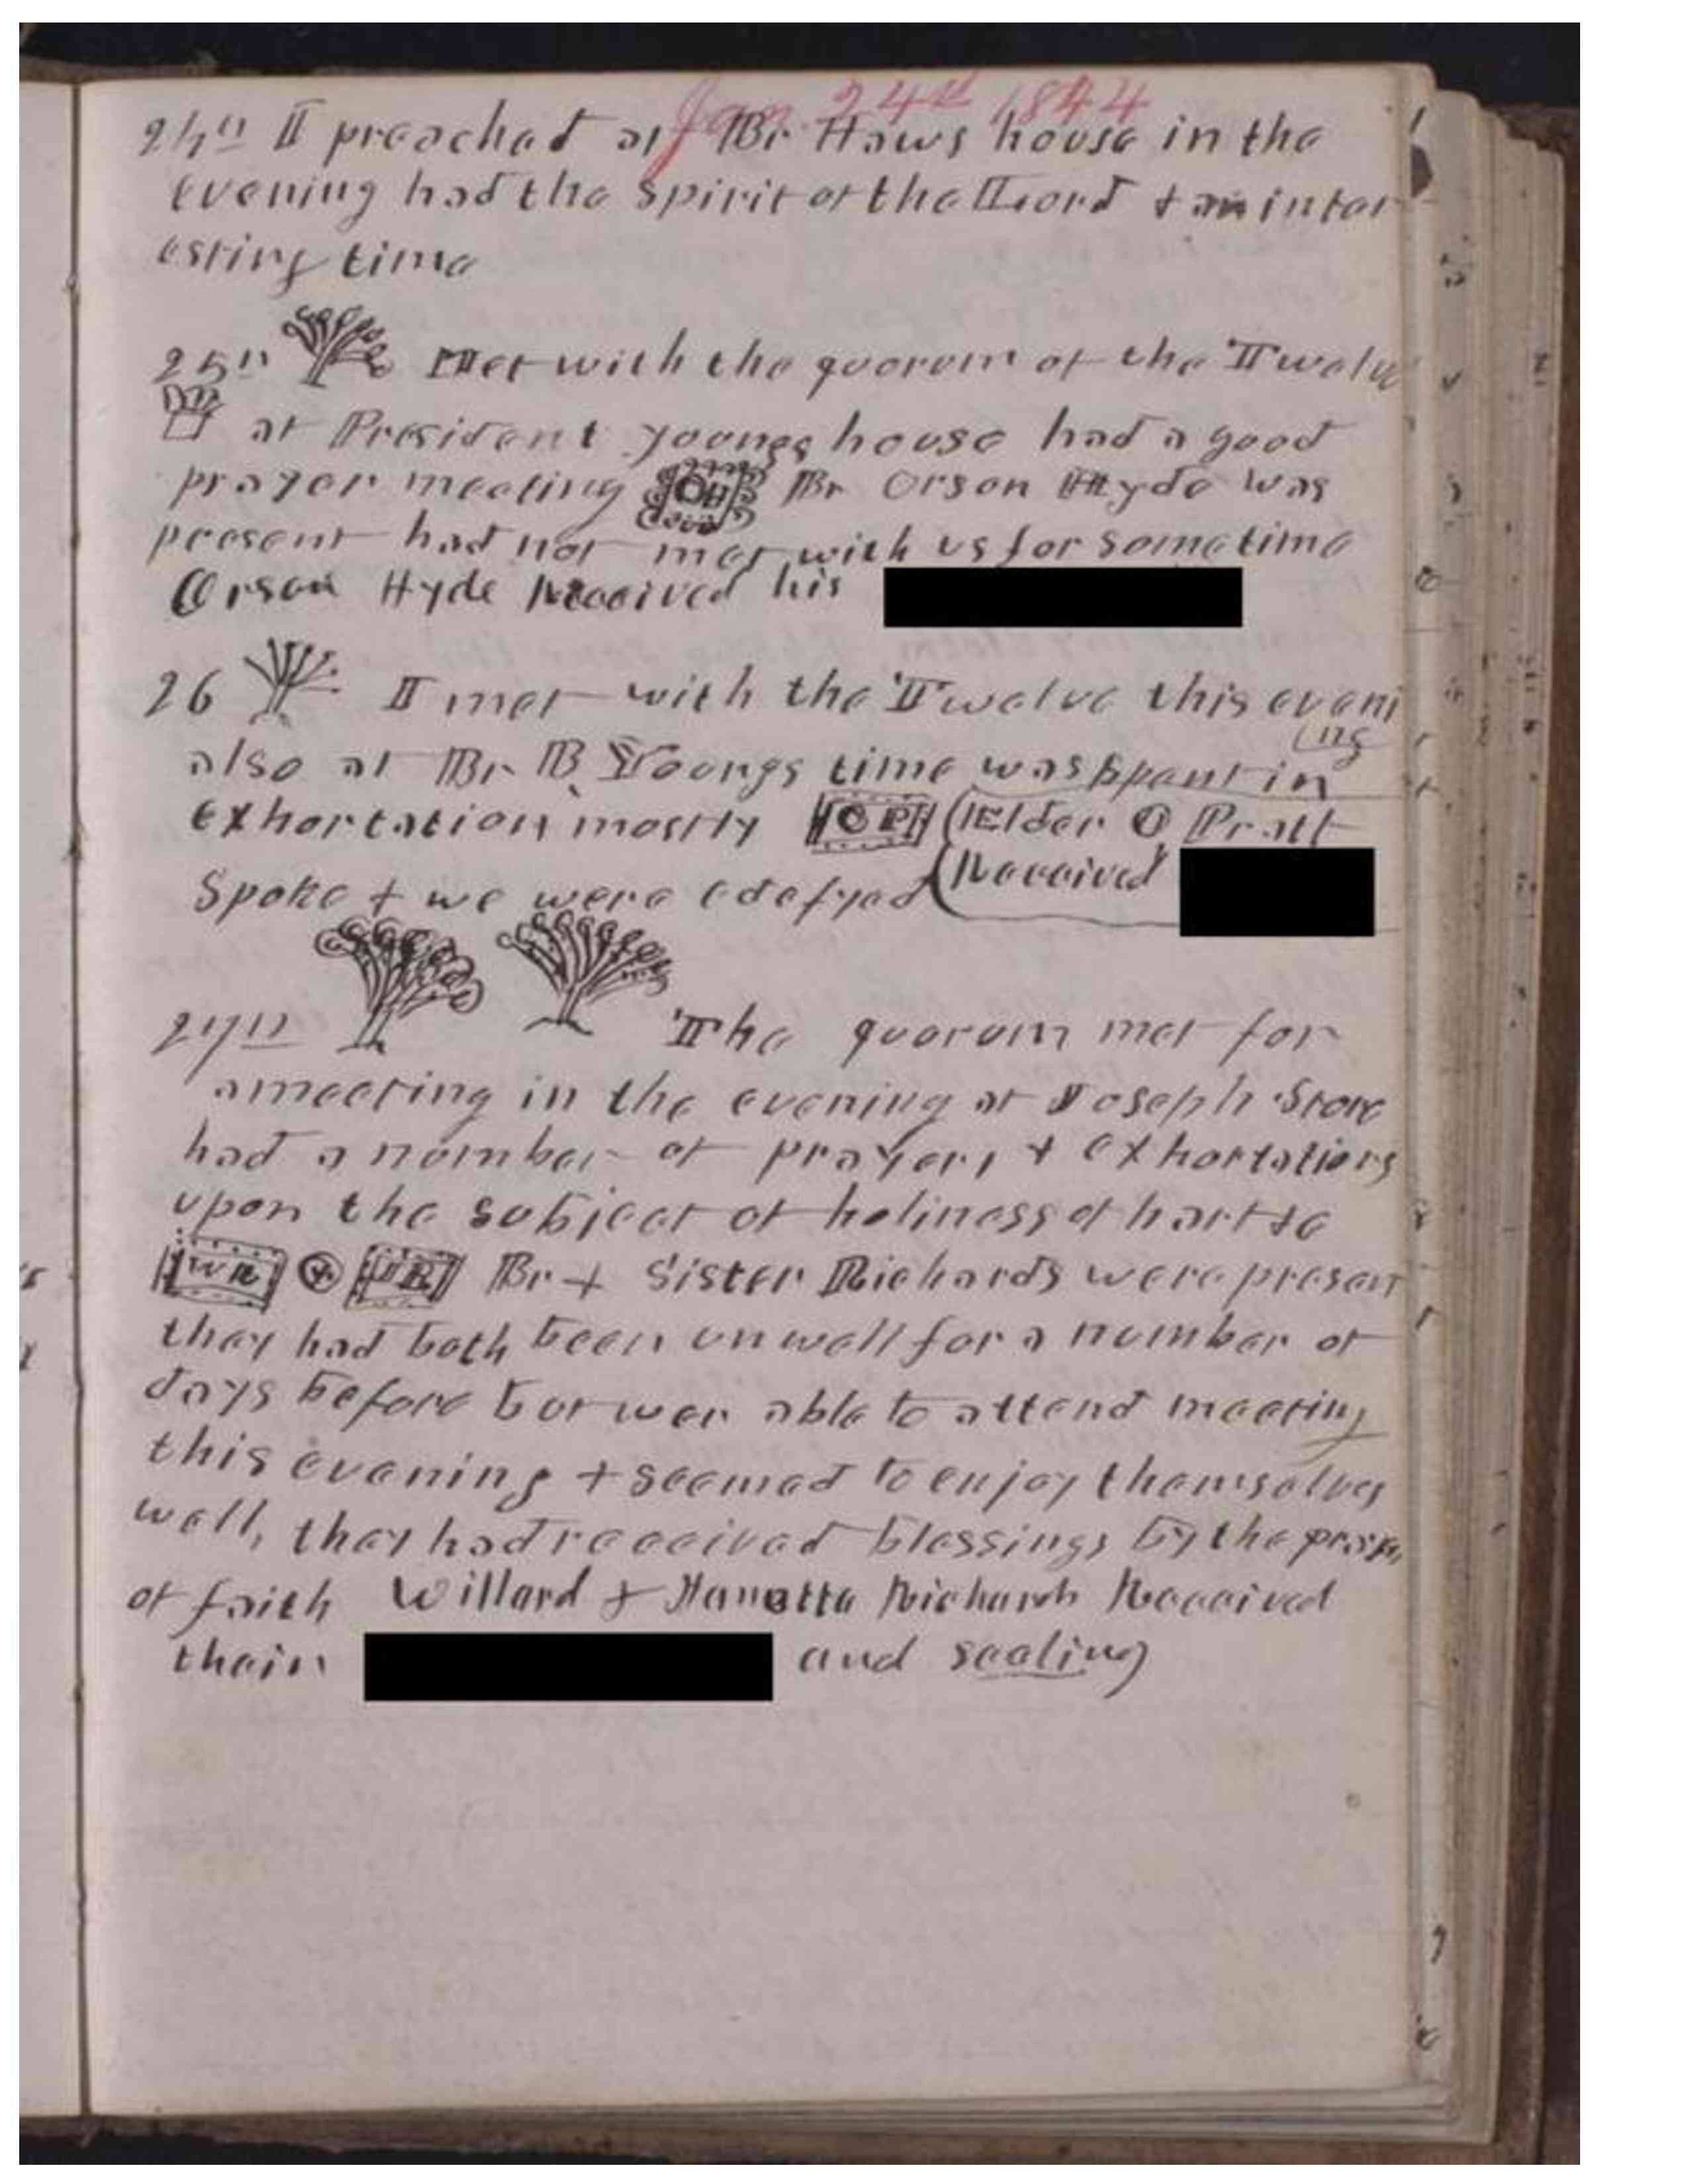 Jan 24th 1844
24th I preached at Br Haws house in the
evening had the spirit of the Lord + an inter
esting time
25th Met with the quorum of the Twelve
at President Youngs house had a good
prayer meeting OH Br Orson Hyde was
present had not met with us for some time
Orson Hyde Received his
26 I met with the Twelve this eveni
ng
also at Br B Youngs time was spent in
exhortation mostly OP Elder O Pratt
Received
Spoke + we were edefyed
27th The quorum met for
a meeting in the evening at Joseph Store
had a number of prayers + exhortations
upon the subject of holiness of hart &c
WR & JR Br + Sister Richards were presen
they had both been unwell for a number of
days before but wer able to attend meeting
this evening + seemed to enjoy themselves
well, they had received blessings by the
of faith Willard + Richards Received
their and sealing